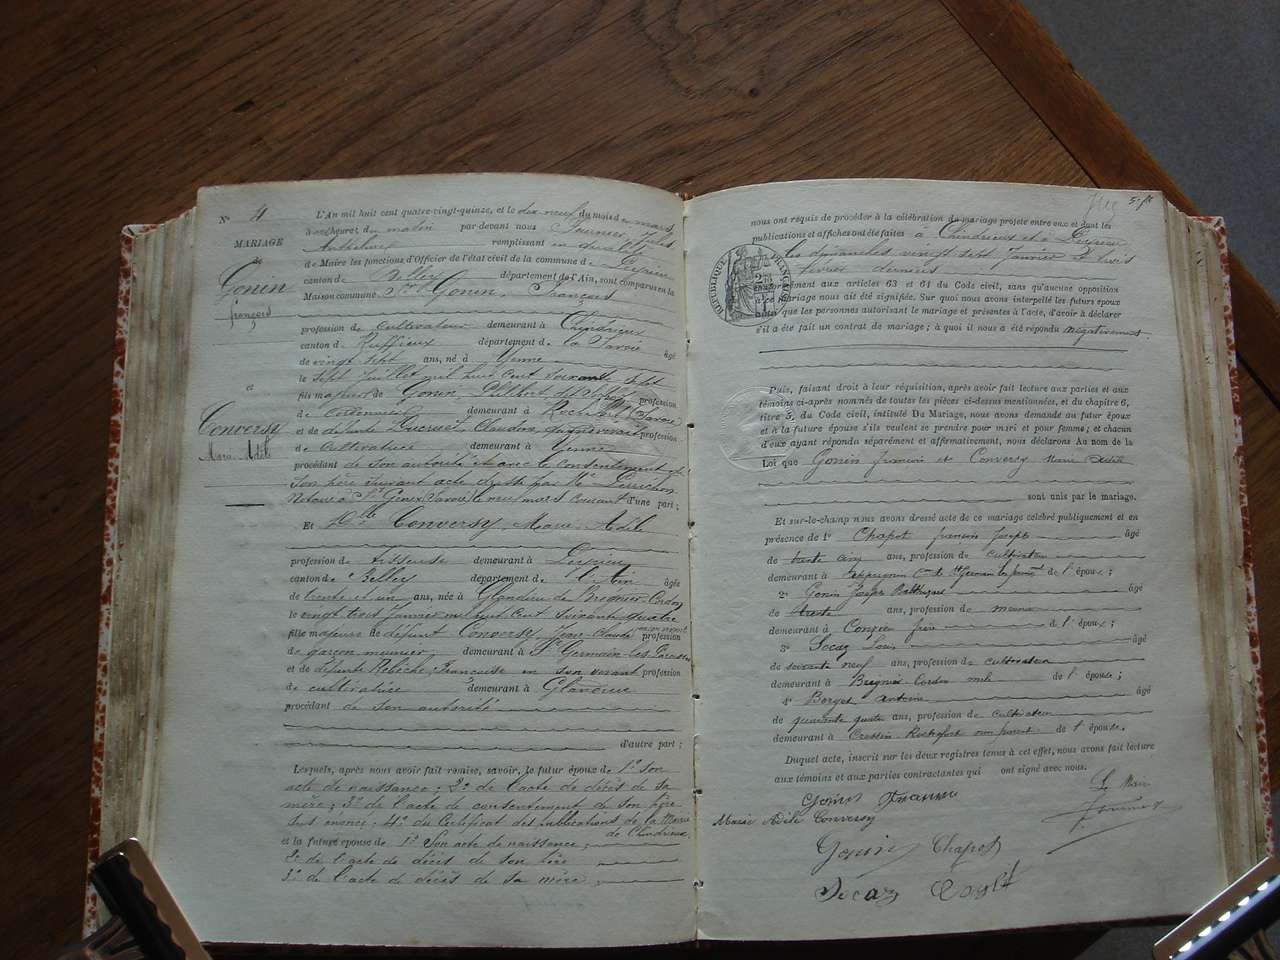 N° 4
MARIAGE
de
Gonin
françois
et
Conversy
Marie Adèle
L'An mil huit cent quatre-vingt-quinze, et le dix-neuf du mois de mars
à neuf heures du matin par devant nous Fournier, Jules
Anthelme remplissant en
de Maire les fonctions d'Officier de l'état civil de la commune de Peyrieu
canton de Belley département de l'Ain, sont comparus en la
Maison commune Sr Gonin, François
profession de cultivateur demeurant à Chindrieux
canton de Ruffieux département de la Savoie âgé
de vingt sept ans, né à Yenne
le sept juillet mil huit cent soixante sept
fils majeur de Gonin, Philibert profession
de Cordonnier demeurant à (Savoie
et de défunte Ducruet, Claudine, profession
de Cultivatrice demeurant à Yenne
procédant de son autorité et avec le consentement de
son père suivant acte dressé par Me Perrichon
Notaire à St Genix (Savoie) le neuf mars courant d'une part;
Et Dlle Conversy, Marie Adèle
profession de Tisseuse demeurant à Peyrieu
canton de Belley département de l'Ain âgée
de trente et un ans, née à Glandieu de Brégnier-Cordon
le vingt trois janvier mil huit cent soixante quatre
fille majeure de défunt Conversy, Jean-Claude profession
de garçon meunier, demeurant à St Germain-les-Paroisses
et de défunte Françoise en son vivant profession
de cultivatrice demeurant à Glandieu
procédant de son autorité
d'autre part;
Lesquels, après nous avoir fait remise, savoir, le futur époux de 1° son
acte de naissance; 2° de l'acte de décès de sa
mère; 3° de l'acte de consentement de son père
sus énoncé; 4° du Certificat des publications de la Mairie
de Chindrieux
et la future épouse de 1° Son acte de naissance;
2° de l'acte de décès de son père
3° de l'acte de décès de sa mère;
5e ft
nous ont requis de procéder à la célébration du mariage projeté entre eux et dont les
publications et affiches ont été faites à Chindrieux et à Peyrieu
les dimanches vingt sept janvier & trois
février derniers
conformément aux articles 63 et 64 du Code civil, sans qu'aucune opposition
à ce mariage nous ait été signifiée. Sur quoi nous avons interpellé les futurs époux
ainsi que les personnes autorisant le mariage et présentes à l'acte, d'avoir à déclarer
s'il a été fait un contrat de mariage; à quoi il nous a été répondu négativement
RÉPUBLIQUE FRANÇAISE
Puis, faisant droit à leur réquisition, après avoir fait lecture aux parties et aux
témoins ci-après nommés de toutes les pièces ci-dessus mentionnées, et du chapitre 6,
titre 5, du Code civil, intitulé Du Mariage, nous avons demandé au futur époux
et à la future épouse s'ils veulent se prendre pour mari et pour femme; et chacun
d'eux ayant répondu séparément et affirmativement, nous déclarons Au nom de la
Loi que Gonin françois et Conversy Marie Adèle
sont unis par le mariage.
Et sur-le-champ nous avons dressé acte de ce mariage célébré publiquement et en
présence de 1° Chapot françois Joseph âgé
de trente cinq ans, profession de cultivateur
demeurant à Cne de St Germain les paroisses de l'époux;
2° Gonin Joseph Balthazar âgé
de trente ans, profession de
demeurant à Conzieu frère de l'époux;
3° Secaz Louis âgé
de soixante neuf ans, profession de cultivateur
demeurant à Bregnier Cordon de l'épouse;
4° Borget antoine âgé
de quarante quatre ans, profession de cultivateur
demeurant à Cressin-Rochefort non parent de l'épouse.
Duquel acte, inscrit sur les deux registres tenus à cet effet, nous avons fait lecture
aux témoins et aux parties contractantes qui ont signé avec nous.
Gonin François
Le Maire
Marie Adèle Conversy
Fournier
Gonin Chapot
Secaz